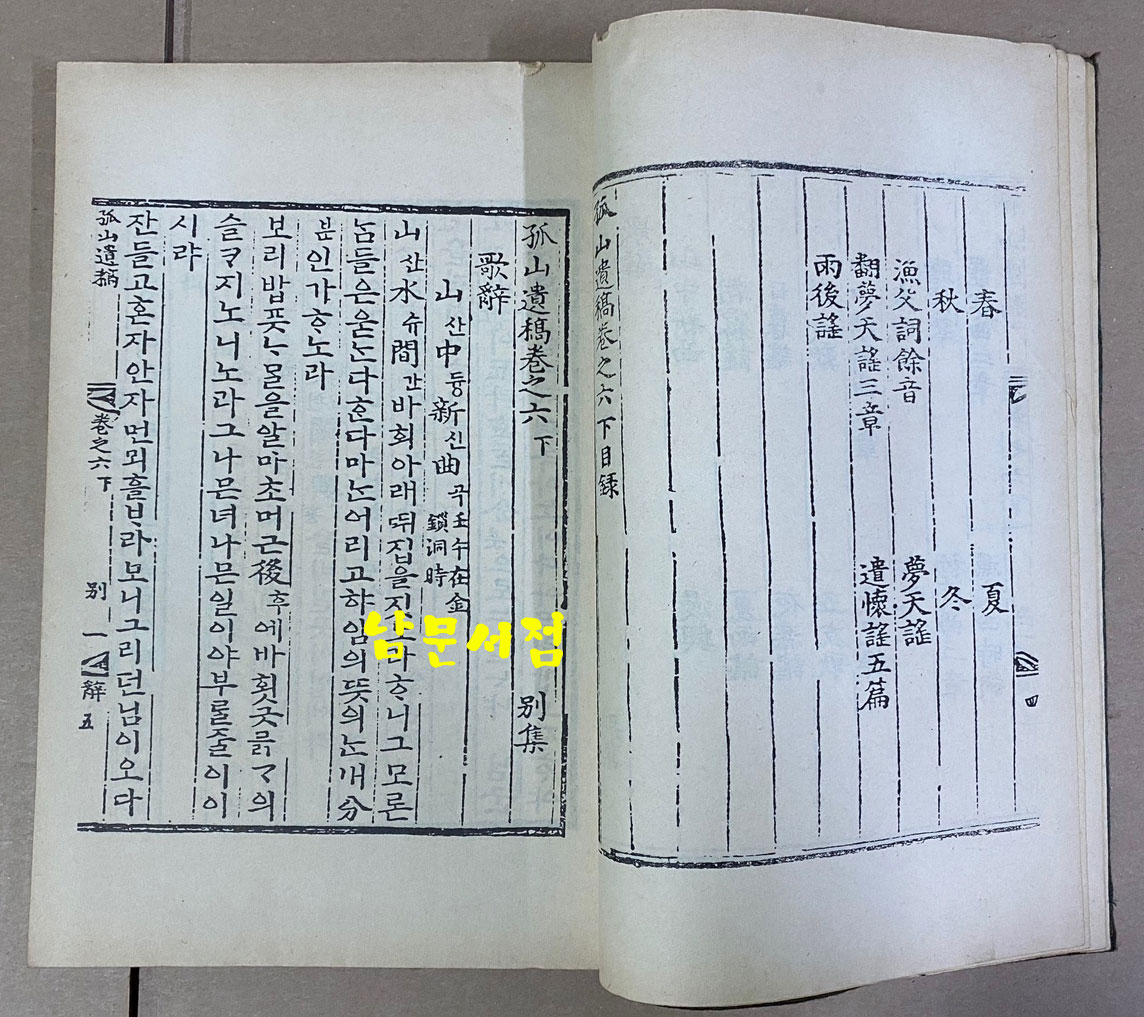 春 夏
秋 冬
漁父詞餘音 夢天謠
翻夢天謠三章 遣懷謠五篇
雨後謠
孤山遺稿卷之六下目録
四
孤山遺稿卷之六 下 別集
歌辭
山산中듕新신曲곡 壬午在金鎖洞時
山산水슈間간바회아래ᄠᅱ집을짓노라ᄒᆞ니그모론
ᄂᆞᆷ들은욷ᄂᆞᆫ다ᄒᆞᆫ다마ᄂᆞᆫ어리고햐암의뜻의ᄂᆞᆫ내分
분인가ᄒᆞ노라
보리밥픗ᄂᆞᄆᆞᆯ을알마초머근後후에바횟긋믉ᄀᆞ의
슬ᄏᆞ지노니노라그나믄녀나믄일이야부ᄅᆞᆯ줄이이
시랴
잔들고혼자안자먼뫼흘ᄇᆞ라보니그리던님이오다
孤山遺稿 卷之六下 別 一 辭五
남문서점